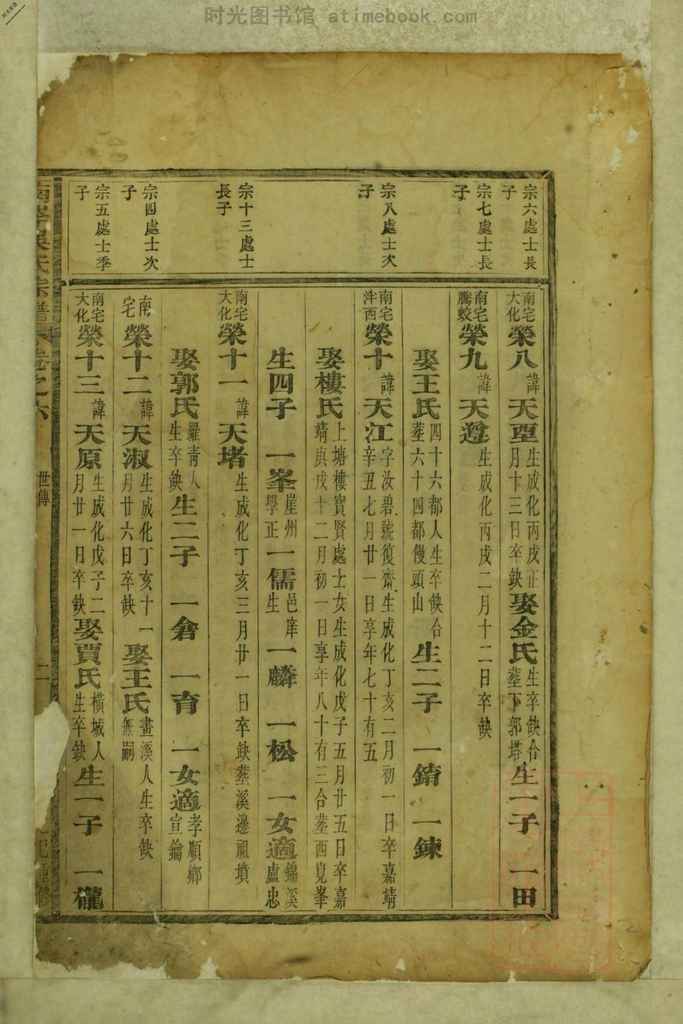 时光图书馆 atimebook.com
宗六處士長子
宗七處士長子
宗八處士次子
宗十三處士長子
宗四處士次子
宗五處士季子
南宅大化榮八諱天㙓生成化丙戌正月卄三日卒缺娶金氏生卒缺合塟下郭塔生一子 一田
南宅腾蛟榮九諱天遵生成化丙戌二月十二日卒缺
娶王氏四十六都人生卒缺合塟六十四都饅頭山生二子 一錥 一鍊
南宅泮西榮十諱天江字汝碧號復齋生成化丁亥二月初一日卒嘉靖辛丑七月廿一日享年七十有五
娶樓氏上塘樓寳賢處士女生成化戊子五月廿五日卒嘉靖庚戌十二月初一日享年八十有三合塟西見峯
生四子 一峯崖州學正一儒邑庠生一麟 一松 一女適錦溪盧忠
南宅大化榮十一諱天堵生成化丁亥三月廿一日卒缺塟溪邊祖墳
娶郭氏羅青人生卒缺生二子 一倉 一育 一女適孝順鄉宣鑰
南宅榮十二諱天淑生成化丁亥十一月廿六日卒缺娶王氏畫溪人生卒缺無嗣
南宅大化榮十三諱天原生成化戊子二月廿一日卒缺娶賈氏橫城人生卒缺生一子 一礲
氏宗譜 卷之六 世傳 二